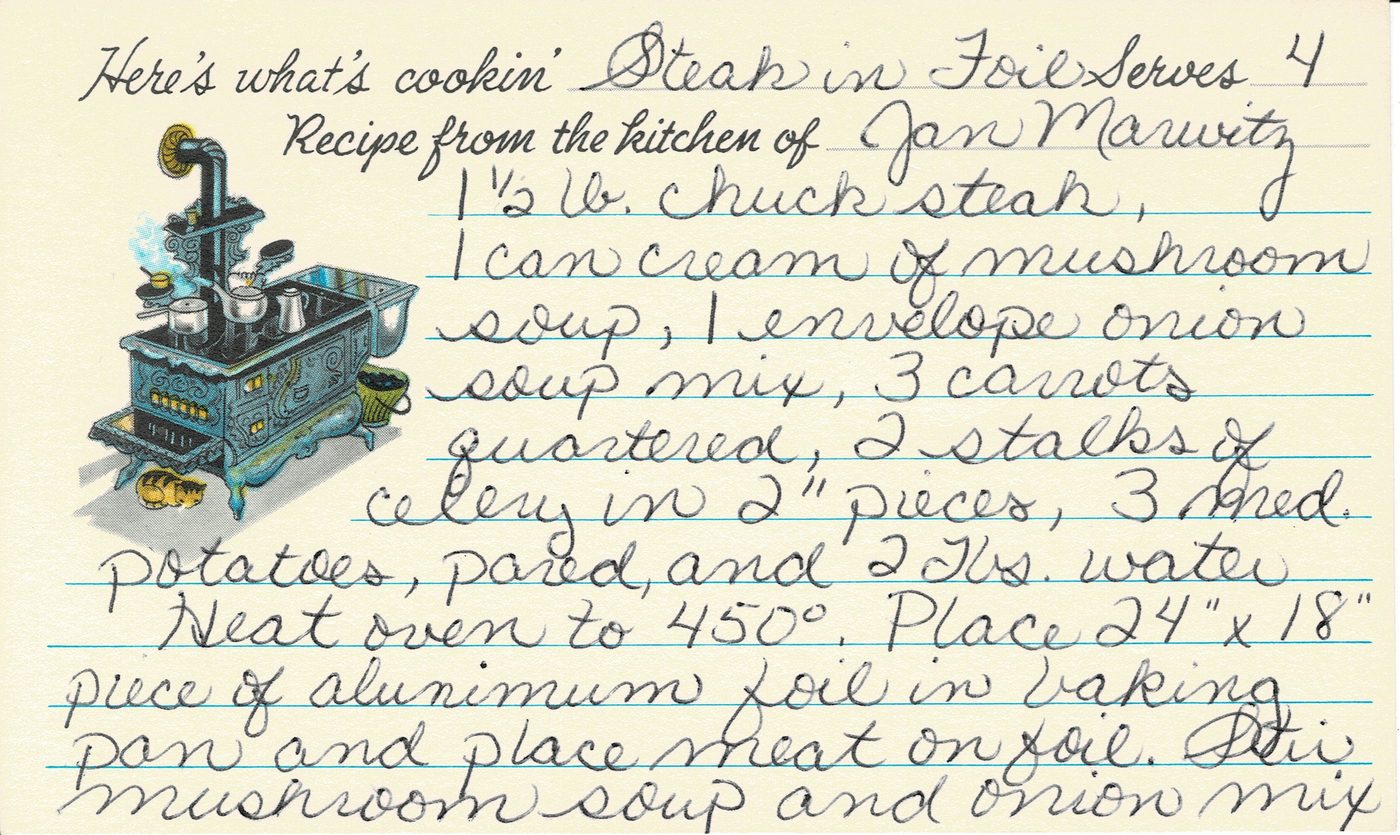 Here's what's cookin' Steak in Foil Serves 4
Recipe from the kitchen of Jan Marwitz
1 1/2 lb. chuck steak,
1 can cream of mushroom
soup, 1 envelope onion
soup mix, 3 carrots
quartered, 2 stalks of
celery in 2" pieces, 3 med.
potatoes, pared, and 2 Tbs. water
Heat oven to 450°. Place 24" x 18"
piece of aluminum foil in baking
pan and place meat on foil. Stir
mushroom soup and onion mix